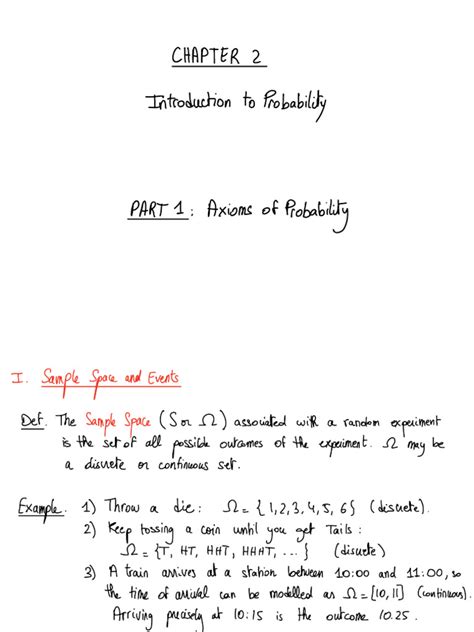 CHAPTER 2
Introduction to Probability
PART 1: Axioms of Probability
I. Sample Space and Events
Def. The Sample Space (S or Ω) associated with a random experiment
is the set of all possible outcomes of the experiment. Ω may be
a discrete or continuous set.
Example. 1) Throw a die: Ω = { 1,2,3,4,5,6} (discrete).
2) Keep tossing a coin until you get Tails:
Ω = {T, HT, HHT, HHHT, ...} (discrete)
3) A train arrives at a station between 10:00 and 11:00, so
the time of arrival can be modelled as Ω = [10,11] (continuous).
Arriving precisely at 10:15 is the outcome 10.25.